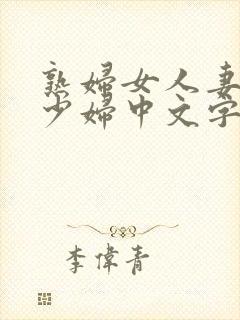 熟婦女人妻
少婦中文字
李偉青